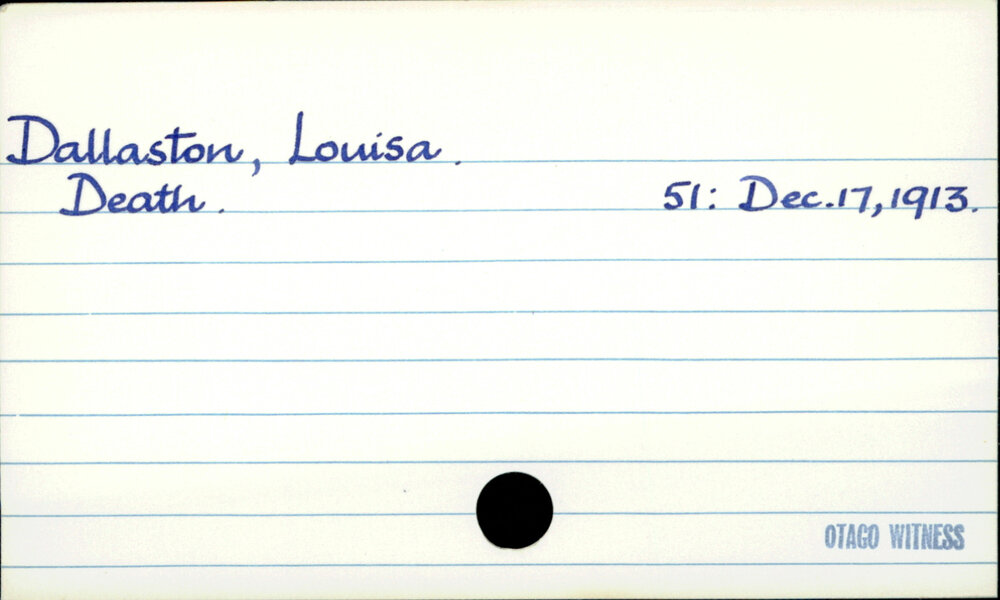 Dallaston, Louisa.
Death. 51: Dec.17,1913.
OTAGO WITNESS